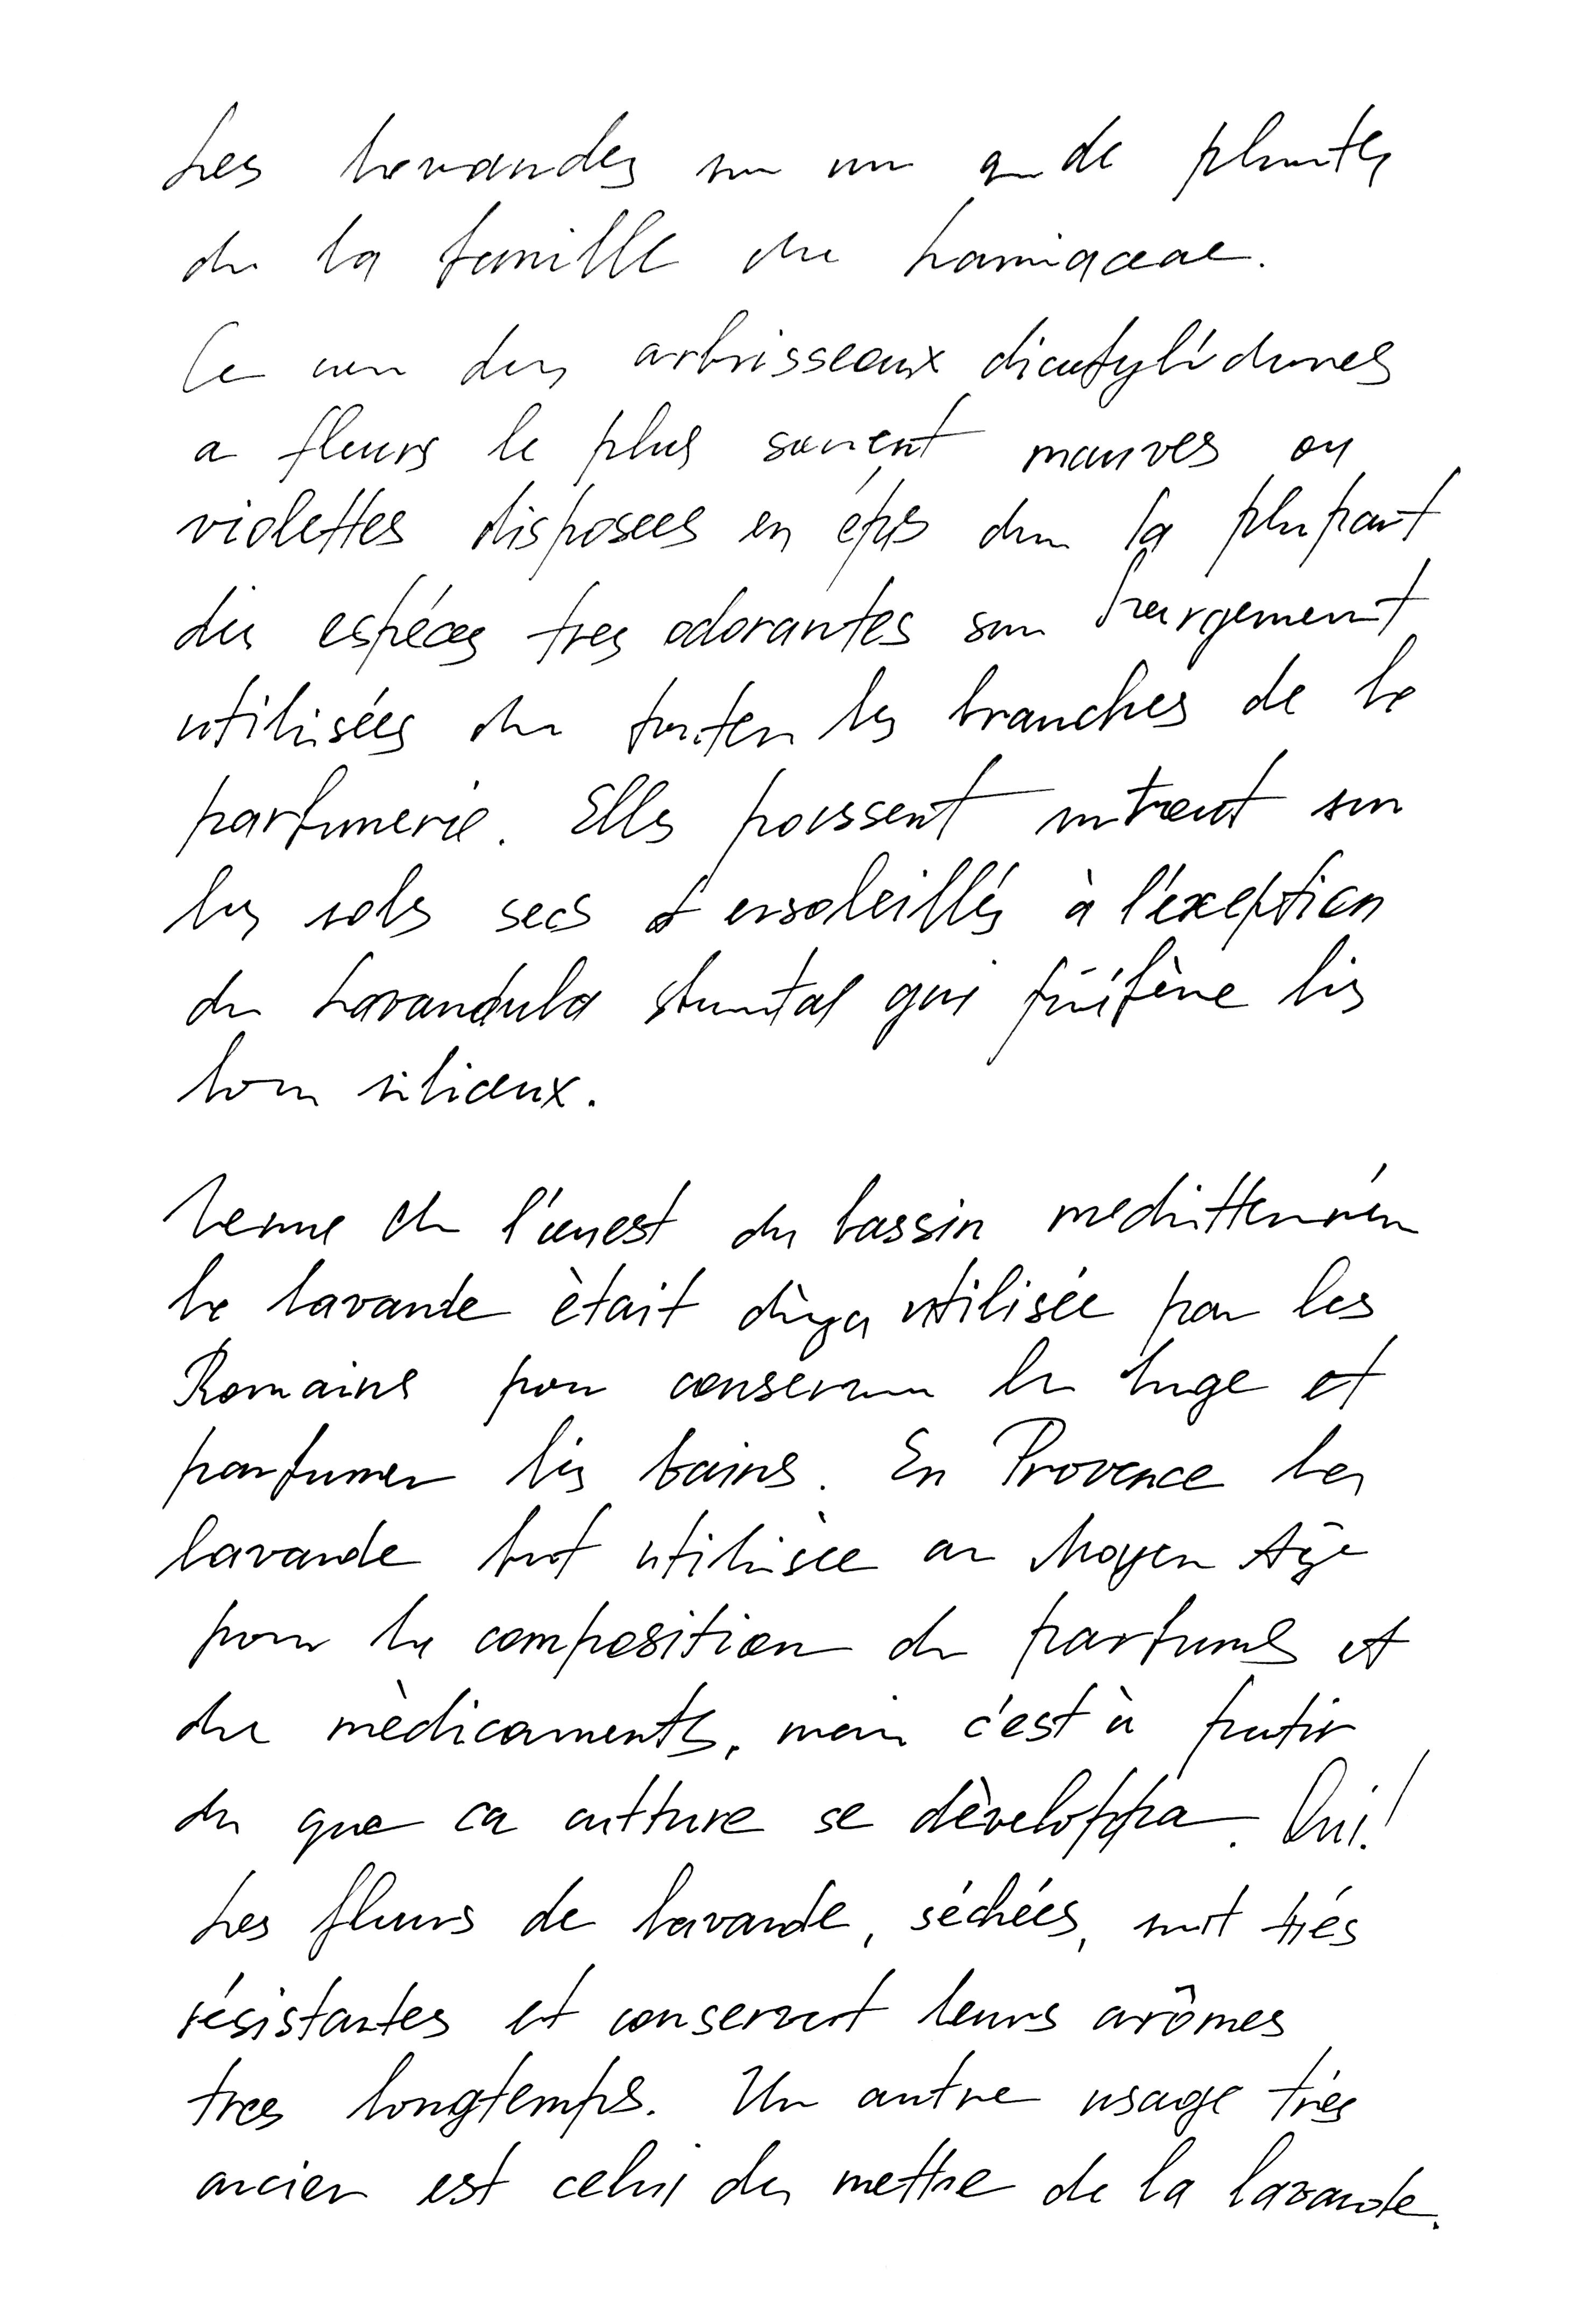 Les lavandes sur un que de plantes
de la famille du Lamiaceae.
Ce des arbrisseaux dicotylédones
a fleurs le plus souvent mauves ou
violettes disposees en épis dans la plupart
des espéces tres odorantes sont largement
utilisées dans toutes les branches de la
parfumerie. Elles poussent surtout sur
les sols secs et ensoleillés à l'exeption
de Lavandula qui préfère les
silicieux.
Venue de l'ouest du bassin
la lavande ètait dèja utilisée par les
Romains pour conserver le linge et
parfumer les bains. En Provence la
lavande fut utilisèe au Moyen Age
pour la composition de parfums et
de mèdicaments, mais c'est à partir
du que ca culture se dèveloppa. Oui!
Les fleurs de lavande, séchées, sont trés
résistantes et conservent leurs arômes
tres longtemps. Un autre usage trés
ancien est celui de mettre de la lavande.